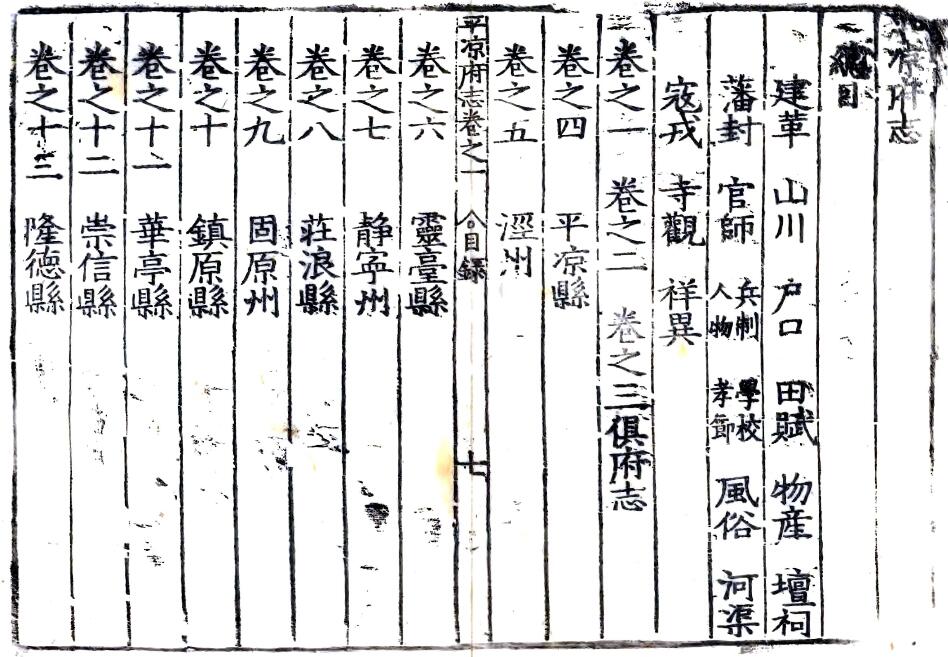 凉府志
總目
建革 山川 户口 田賦 物産 壇祠
藩封 官師 兵制 人物 學校 孝節 風俗 河渠
寇戎 寺觀 祥異
卷之一 卷之二 卷之三俱府志
卷之四 平凉縣
卷之五 涇州
平凉府志卷之一 目録 七
卷之六 靈臺縣
卷之七 靜寧州
卷之八 莊浪縣
卷之九 固原州
卷之十 鎮原縣
卷之十一 華亭縣
卷之十二 崇信縣
卷之十三 隆德縣